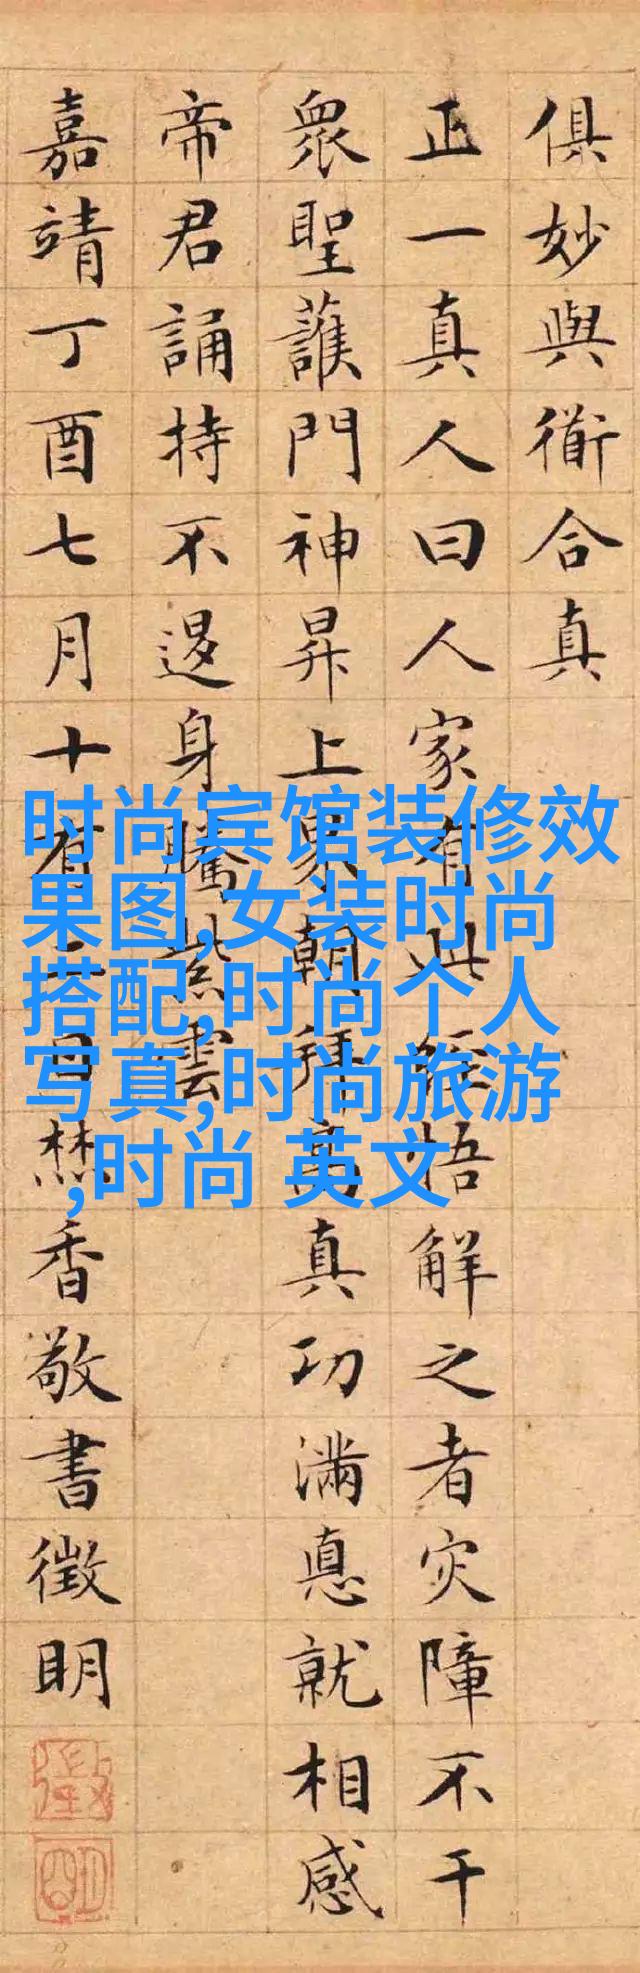 俱妙與衜合真
正一真人曰人家有此經悟解之者灾障不干
衆聖護門神昇上界朝拜高真功滿悳就相感
帝君誦持不退身騰紫雲
嘉靖丁酉七月十有日焚香敬書徵明
徵
明
时尚宾馆装修效
果图,女装时尚
搭配,时尚个人
写真,时尚旅游
,时尚 英文